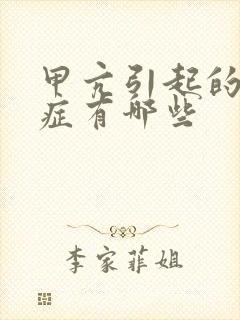 甲亢引起的
症有哪些
李家菲姐